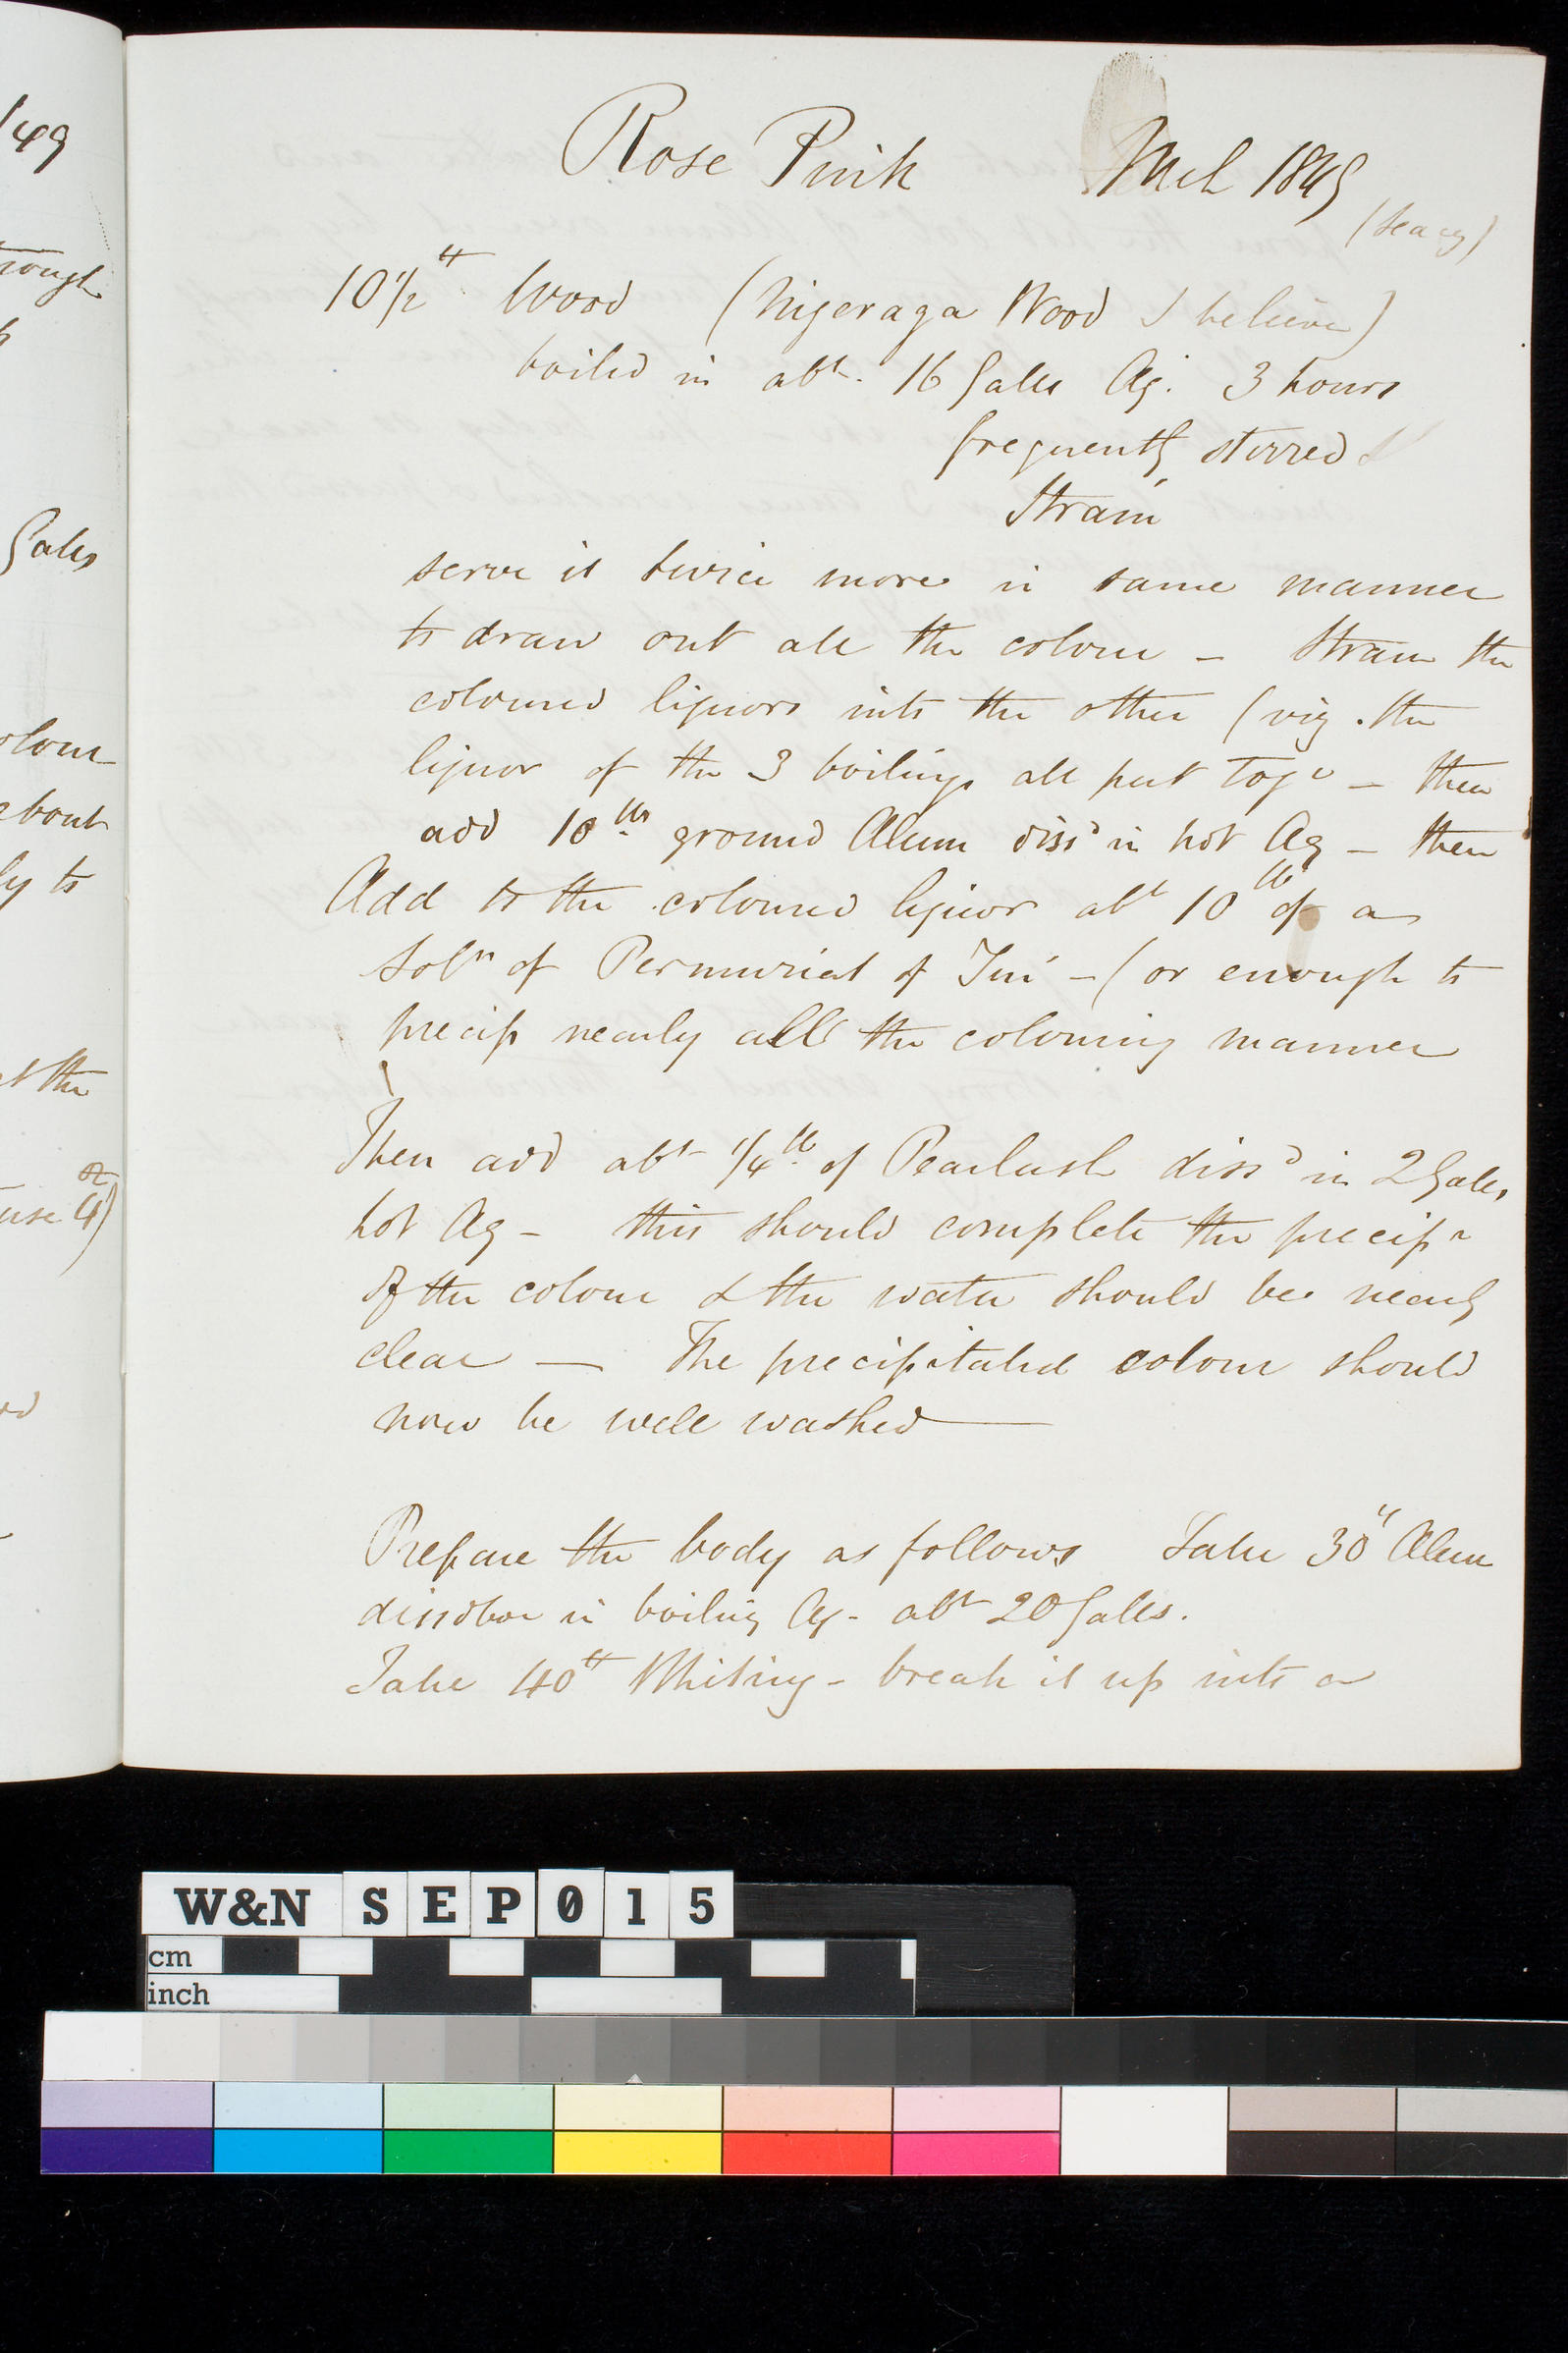 /49
rough
Galls
olour
about
ly to
at the
or
use 4)
Rose Pink Mch 1849
(Seacy)
10 1/2 lb Wood (Nigeraga Wood I believe)
boiled in abt. 16 Galls Aq. 3 hours
frequently stirred &
Strain
serve it twice more in same manner
to draw out all the colour - Strain the
coloured liquors into the other (viz. the
liquor of the 3 boilings all put togr - then
add 10 lbs ground Alum dissd in hot Aq - then
Add to the coloured liquor abt 10 lb of a
Soln of Permuriat of Tin - (or enough to
precip nearly all the colouring manner
Then add abt 1/4 lb of Pearlash dissd in 2 Galls
hot Aq - this should complete the precipn
of the colour & the water should be nearly
clear — The precipitated colour should
now be well washed —
Prepare the body as follows Take 30 lb Alum
dissolve in boiling Aq - abt 20 Galls.
Take 40 lb Whiting - break it up into a
W&N SEP015
cm
inch